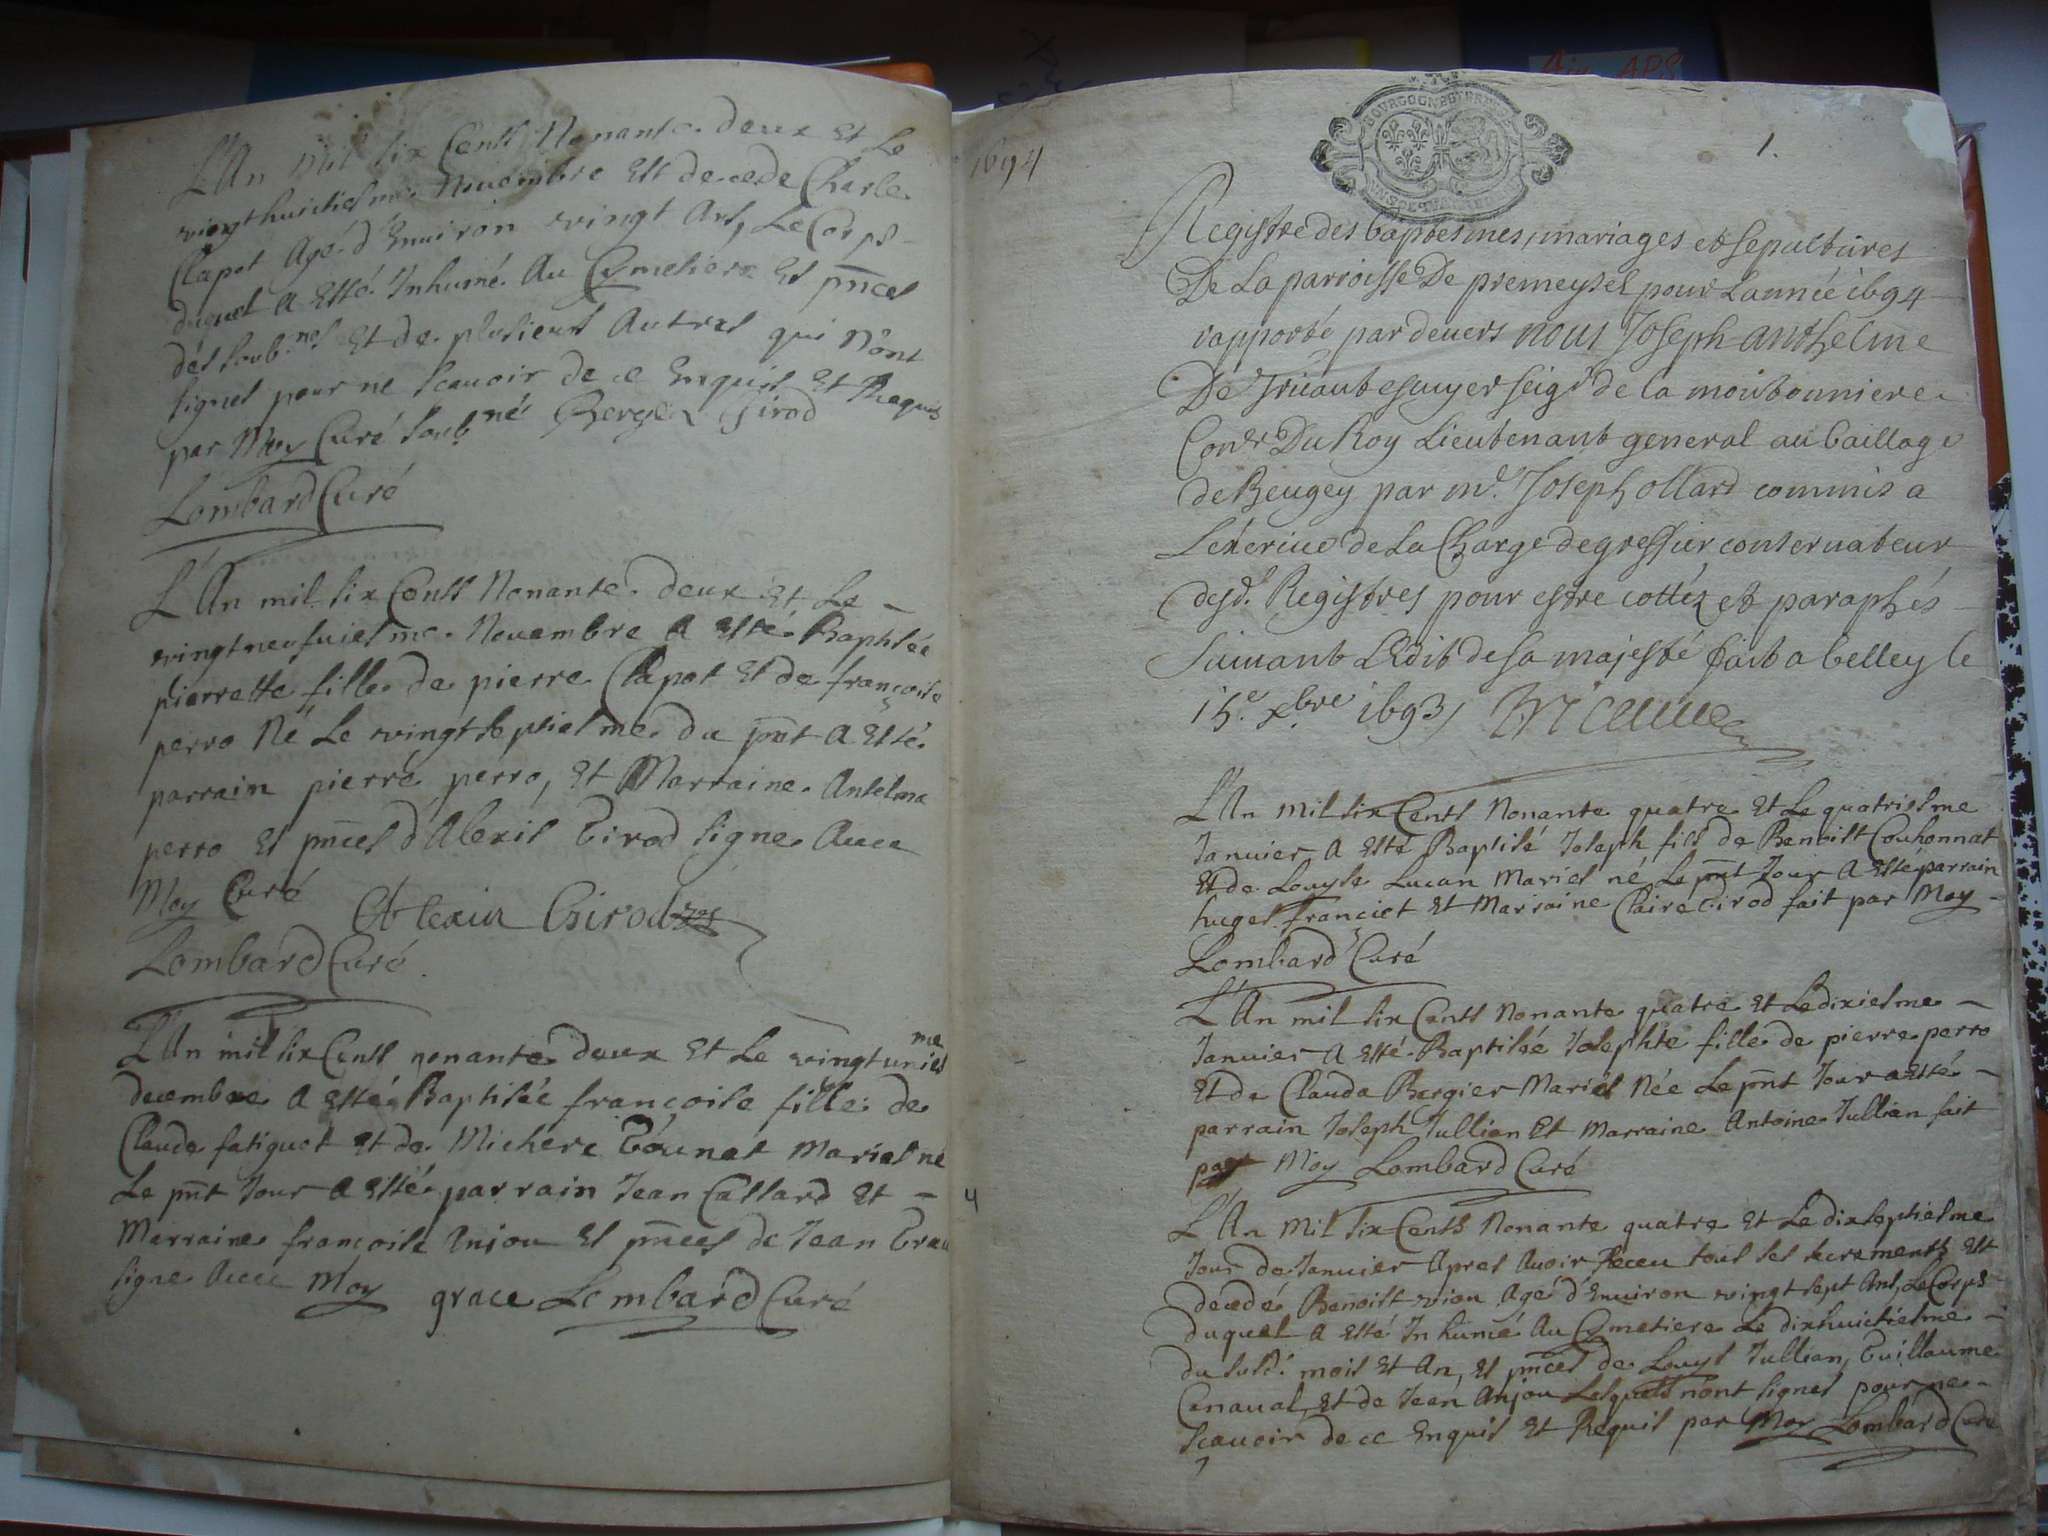 L'An Mil six Cents Nonante deux Et Le
vingthuictiesme Nouembre Est decede Charle
Clapot Agé d'Enuiron vingt Ans, Le Corps
duquel A Esté Inhumé Au Cymetiere Et pnces
des soub.nes Et de plusieurs Autres qui N'ont
signes pour ne scauoir de ce Enquis Et Requis
par Moy Curé soub.né Girod
Lombard Curé
L'An mil six Cents Nonante deux Et Le
vingtneufuiesme Nouembre A Esté Baptisée
pierrette fille de pierre Clapot Et de françoise
perro Né Le vingtseptiesme du pnt A Esté
parrain pierre perro, Et Marraine Antelma
perro Et pnces d'Alexis Girod signe Auec
Moy Curé Alexis Girod
Lombard Curé
L'An mil six Cents nonante deux Et Le vingtunies me
decembre A esté Baptisée françoise fille de
Claude fatiguet Et de Michere Gounet Maries né
Le pnt Jour A Esté parrain Jean Callard Et
Marraine françoise Anjou Et pnces de Jean Grau
signe Auec Moy grace Lombard Curé
4
1694
1.
Registre des baptesmes, mariages et sepultures
De La parroisse De premeysel pour Lannée 1694
rapporté par deuers nous Joseph anthelme
De Tricaut escuyer seigr de la moirbonniere
Conr Du Roy Lieutenant general au baillage
de Beugey par me. Joseph ollard commis a
Lexerice de La Charge de greffier conseruateur
desd. Registres pour estre cottéz et paraphés
Suiuant L'Edit de sa majesté fait a belley le
15e. xbre 1693
L'An mil six Cents Nonante quatre Et Le quatriesme
Januier A Esté Baptisé Joseph fils de Benoist Couhonnat
Et de Louyse Lucan Maries né Le pnt Jour A Esté parrain
huges franciet Et Marraine Claire Girod fait par Moy
Lombard Curé
L'An mil six Cents Nonante quatre Et Le dixiesme
Januier A Esté Baptisée Josephte fille de pierre perro
Et de Clauda Bergier Mariés Née Le pnt Jour a Esté
parrain Joseph Jullien Et Marraine Antoine Jullien fait
par Moy Lombard Curé
L'An Mil six Cents Nonante quatre Et Le dixseptiesme
Jour de Januier Apres Auoir Receu tous ses sacrements Est
decedé Benoist viou Agé d'Enuiron vingt sept Ans, Le Corps
duquel A Esté Inhumé Au Cymetiere Le dixhuictiesme
du susd. mois Et An, Et pnces de Louys Jullien, Guillaume
Canaual, Et de Jean Anjou Lesquels n'ont signes pour ne
scauoir de ce Enquis Et Requis par Moy Lombard Curé